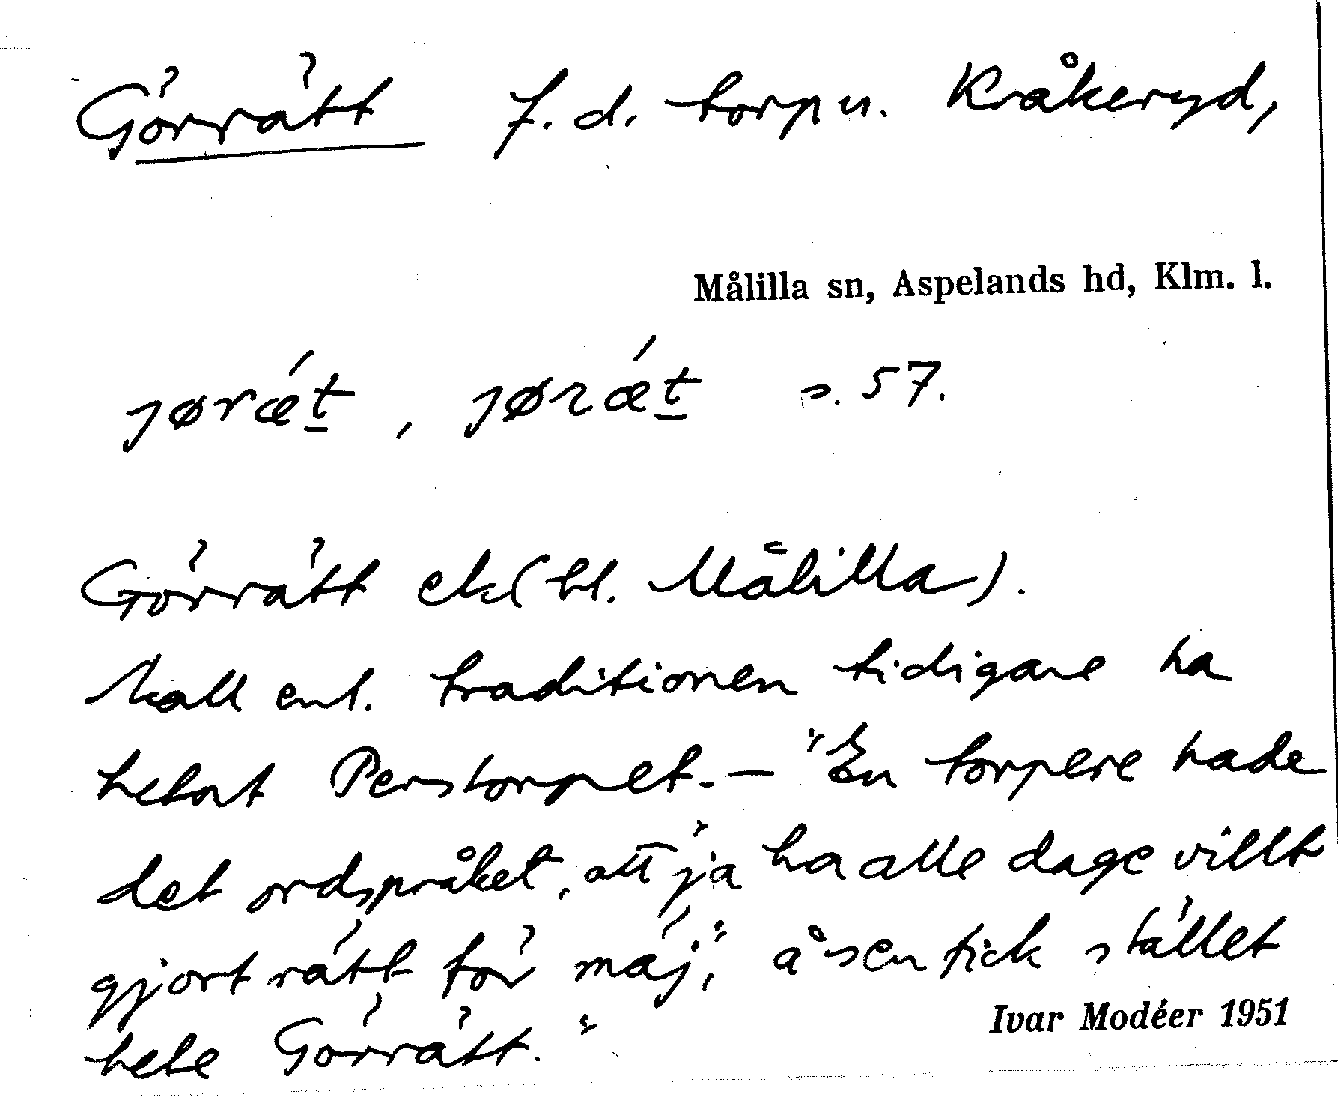 Görrätt f.d. torp u. Kråkeryd,
Målilla sn, Aspelands hd, Klm. l.
jørǽt, jørǽt s. 57.
Görrätt ek (bl. Målilla).
Skall enl. traditionen tidigare ha
hetat Perstorpet. – "En torpere hade
det ordspråket, att "ja ha alle dage villt
gjort rätt för mäj", å sen fick stället
hete Görrätt."
Ivar Modéer 1951